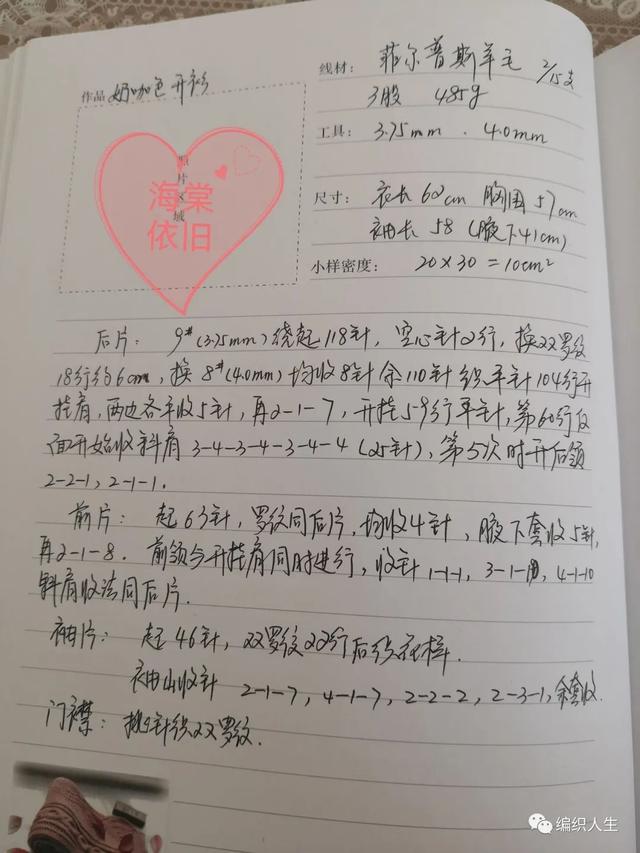 作品 奶咖色开衫
线材： 菲尔普斯羊毛 2/15支
3股 485g
工具： 3.75mm . 4.0mm
照片区域
海棠
依旧
尺寸： 衣长60cm 胸围57cm
袖长 58 (腋下41cm)
小样密度： 20×30=10cm²
后片： 9#(3.75mm)绕起118针，空心针2行，换双罗纹
18行约6cm，换8#(4.0mm)均收8针余110针织平针104行开
挂肩，两边各平收5针，再2-1-7，开挂59行平针，第60行反
面开始收斜肩 3-4-3-4-3-4-4 (25针)，第5次时开后领
2-2-1，2-1-1.
前片： 起63针，罗纹同后片，均收4针，腋下套收5针，
再2-1-8. 前领与开挂肩同时进行，收针1-1-1，3-1-10，4-1-10
斜肩收法同后片.
袖片： 起46针，双罗纹22行后织花样.
袖山收针 2-1-7，4-1-7，2-2-2，2-3-1，余套收.
门襟： 挑针织双罗纹.
编织人生